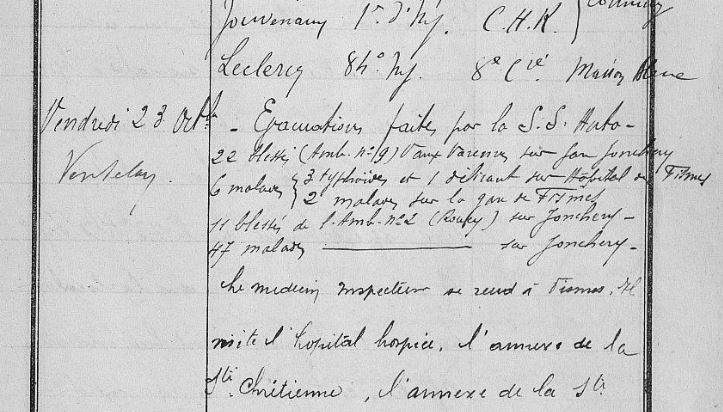 Jouvenaux 1er d'Inf. C.H.R.
Leclercq 84e Inf. 8e Cie. Maison Bleue
Vendredi 23 Octb
Ventelay
- Evacuations faites par la S.S. Auto -
22 blessés (Amb. no 19) Vaux Varennes sur gare Jonchery
6 malades { 3 typhoïdes et 1 délirant sur Hôpital de Fismes
2 malades sur la gare de Fismes
11 blessés de l'Amb. no 2 (Roucy) sur Jonchery -
47 malades ———— sur Jonchery -
Le medecin Inspecteur se rend à Fismes. Il
visite l'hopital hospice, l'annexe de la
Ste. Chrétienne, l'annexe de la Ste